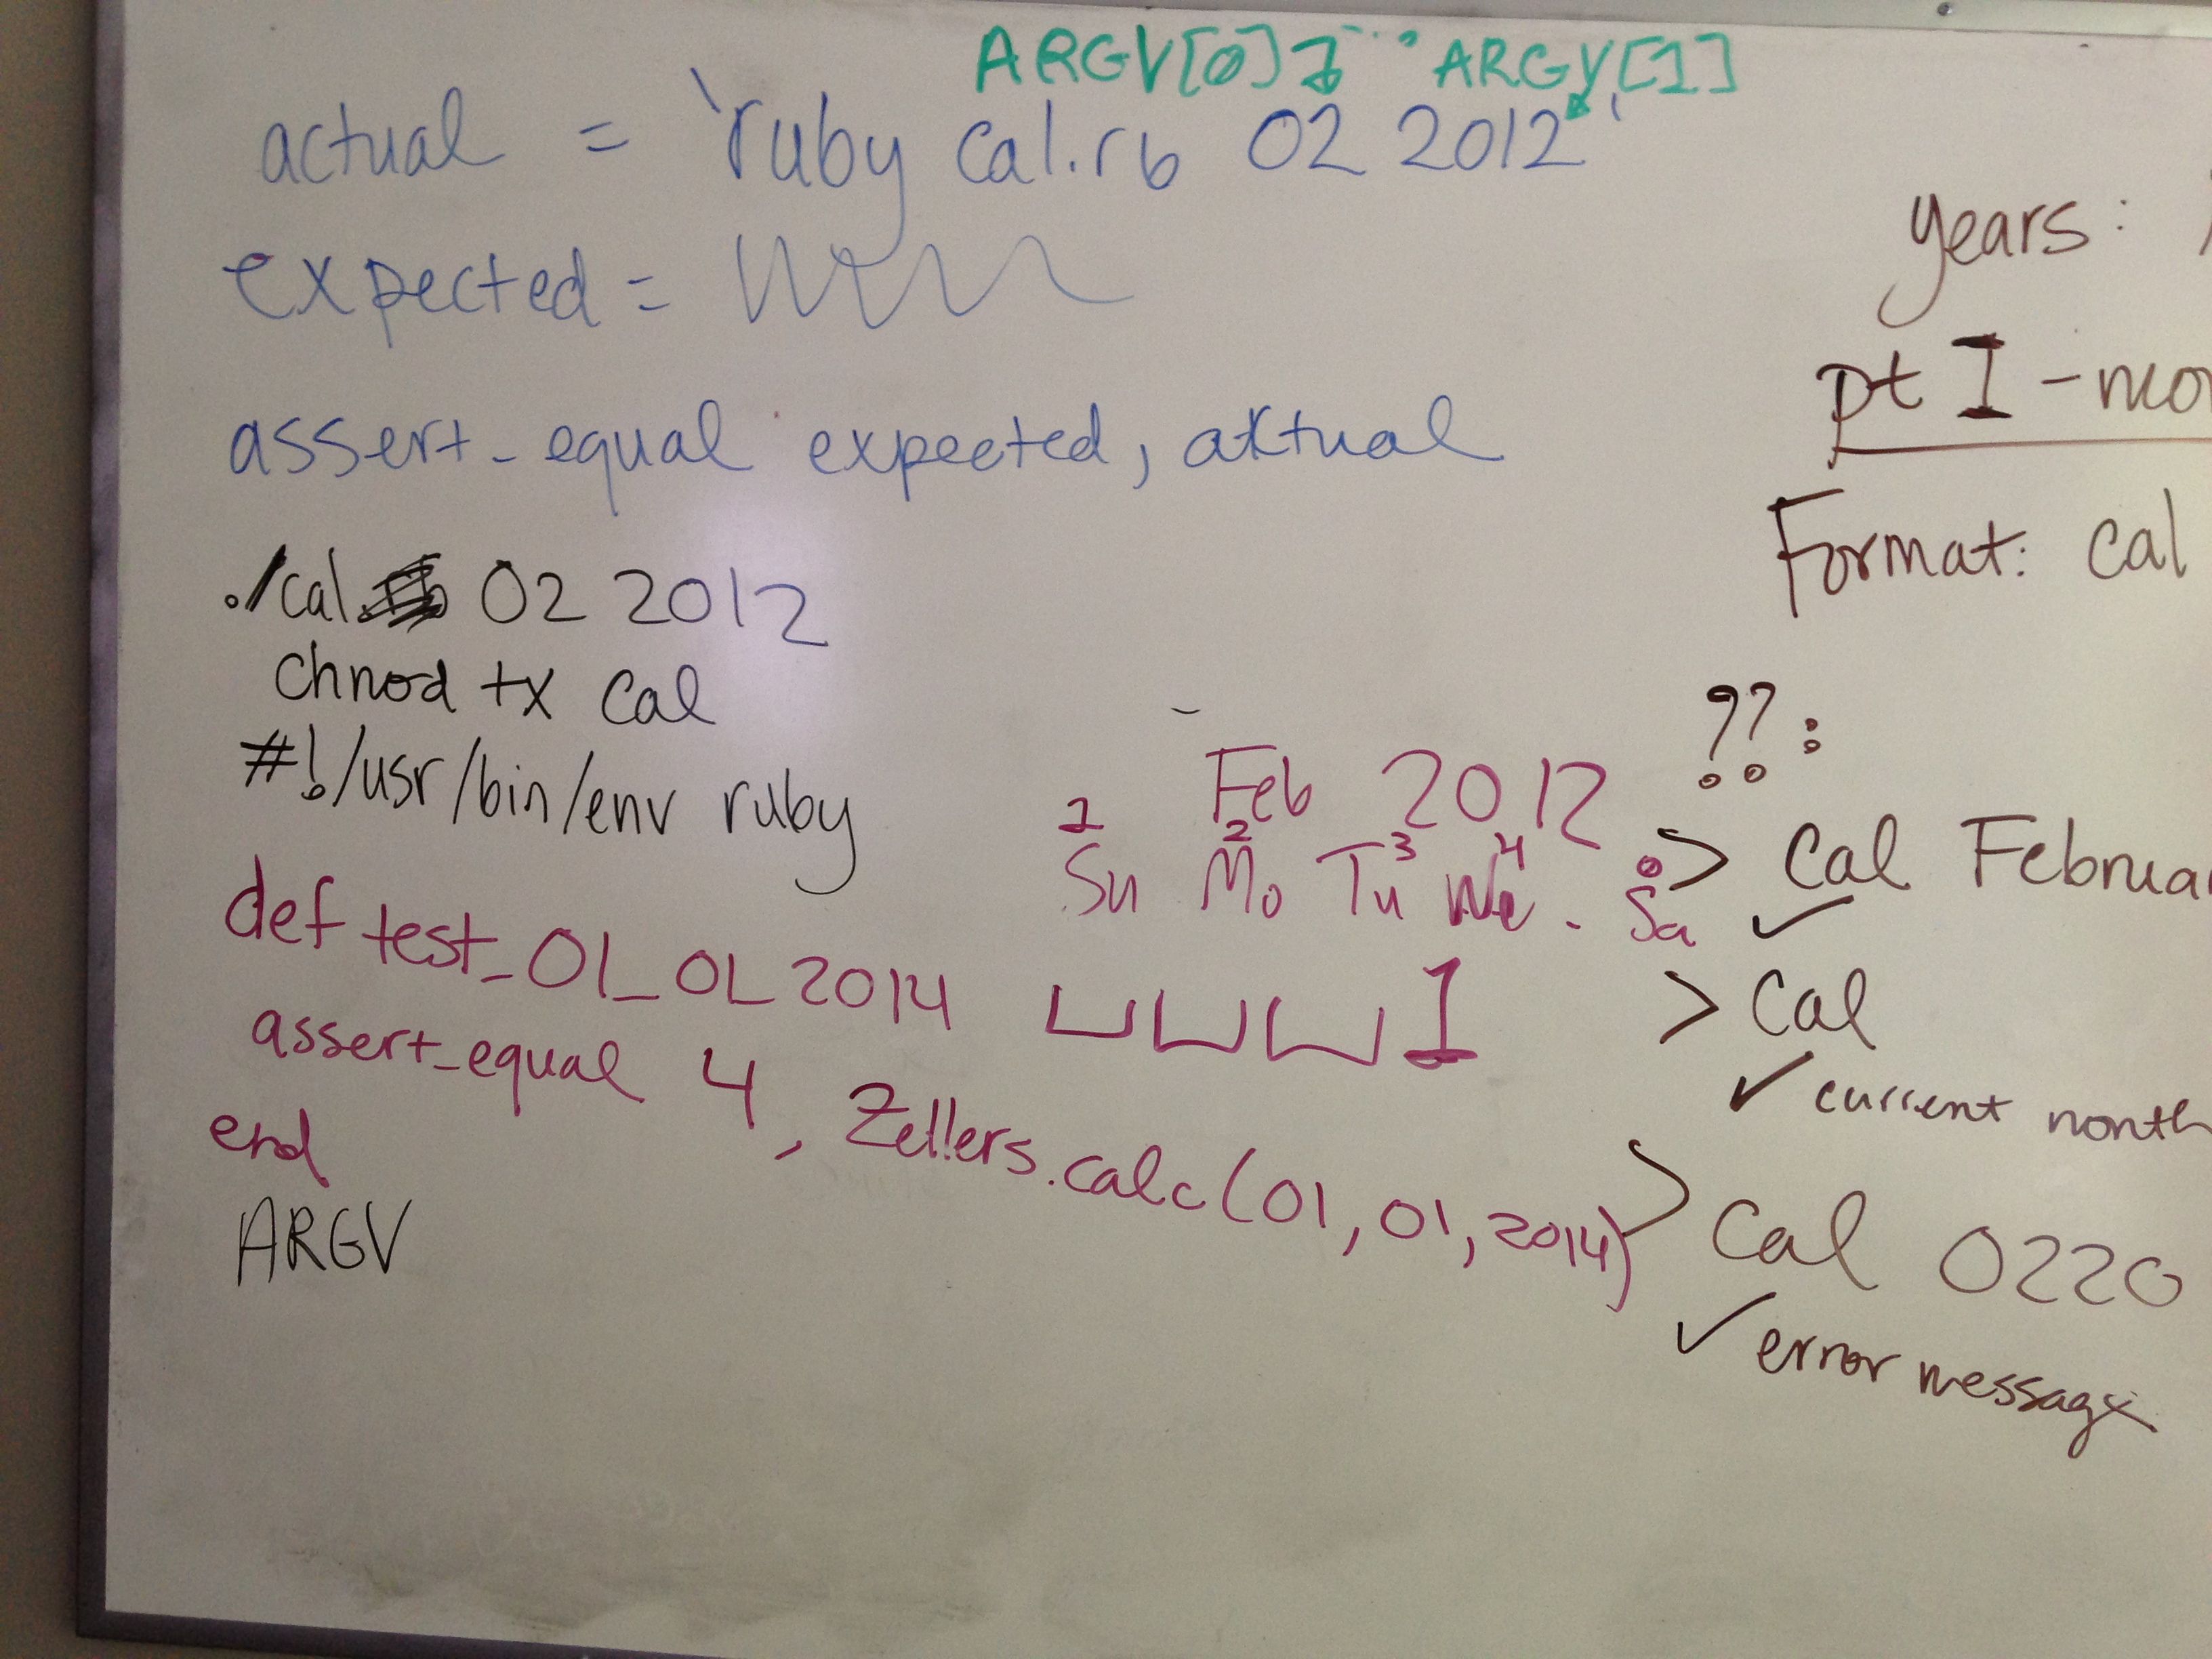 ARGV[0] ARGV[1]
actual = `ruby cal.rb 02 2012`
expected =
assert_equal expected, actual
./cal 02 2012
chmod +x cal
#!/usr/bin/env ruby
def test_01_01_2014
assert_equal 4, Zellers.calc(01, 01, 2014)
end
ARGV
Feb 2012
1 2 3 4 0
Su Mo Tu We - Sa
1
years:
pt I - mo
Format: cal
??:
> cal Februar
✓
> cal
✓ current month
> cal 0220
✓ error message